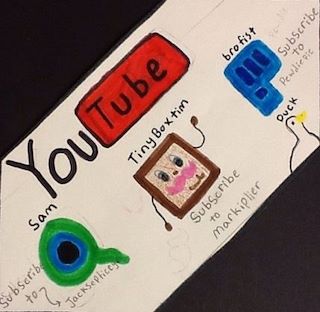 YouTube
brofist
Subscribe
to
Pewdiepie
Duck
TinyBoxtim
Subscribe
to
markiplier
Sam
Subscribe
to
Jacksepticey